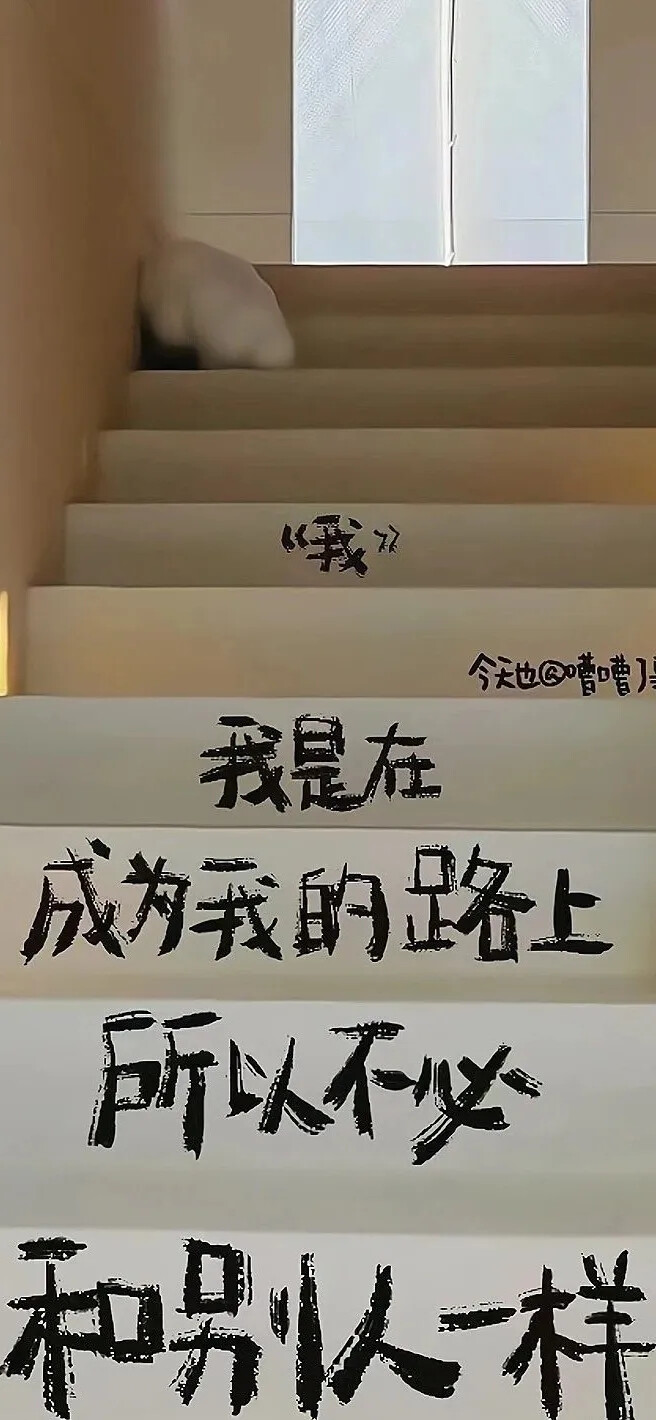 《我》
今天也@嘈嘈了
我是在
成为我的路上
所以不必
和别人一样